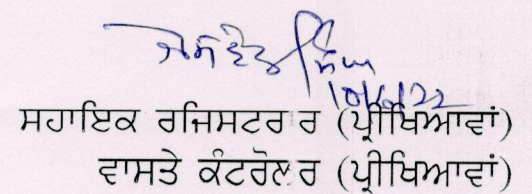 10/6/22
ਸਹਾਇਕ ਰਜਿਸਟਰ ਰ (ਪ੍ਰੀਖਿਆਵਾਂ)
ਵਾਸਤੇ ਕੰਟਰੋਲਰ (ਪ੍ਰੀਖਿਆਵਾਂ)